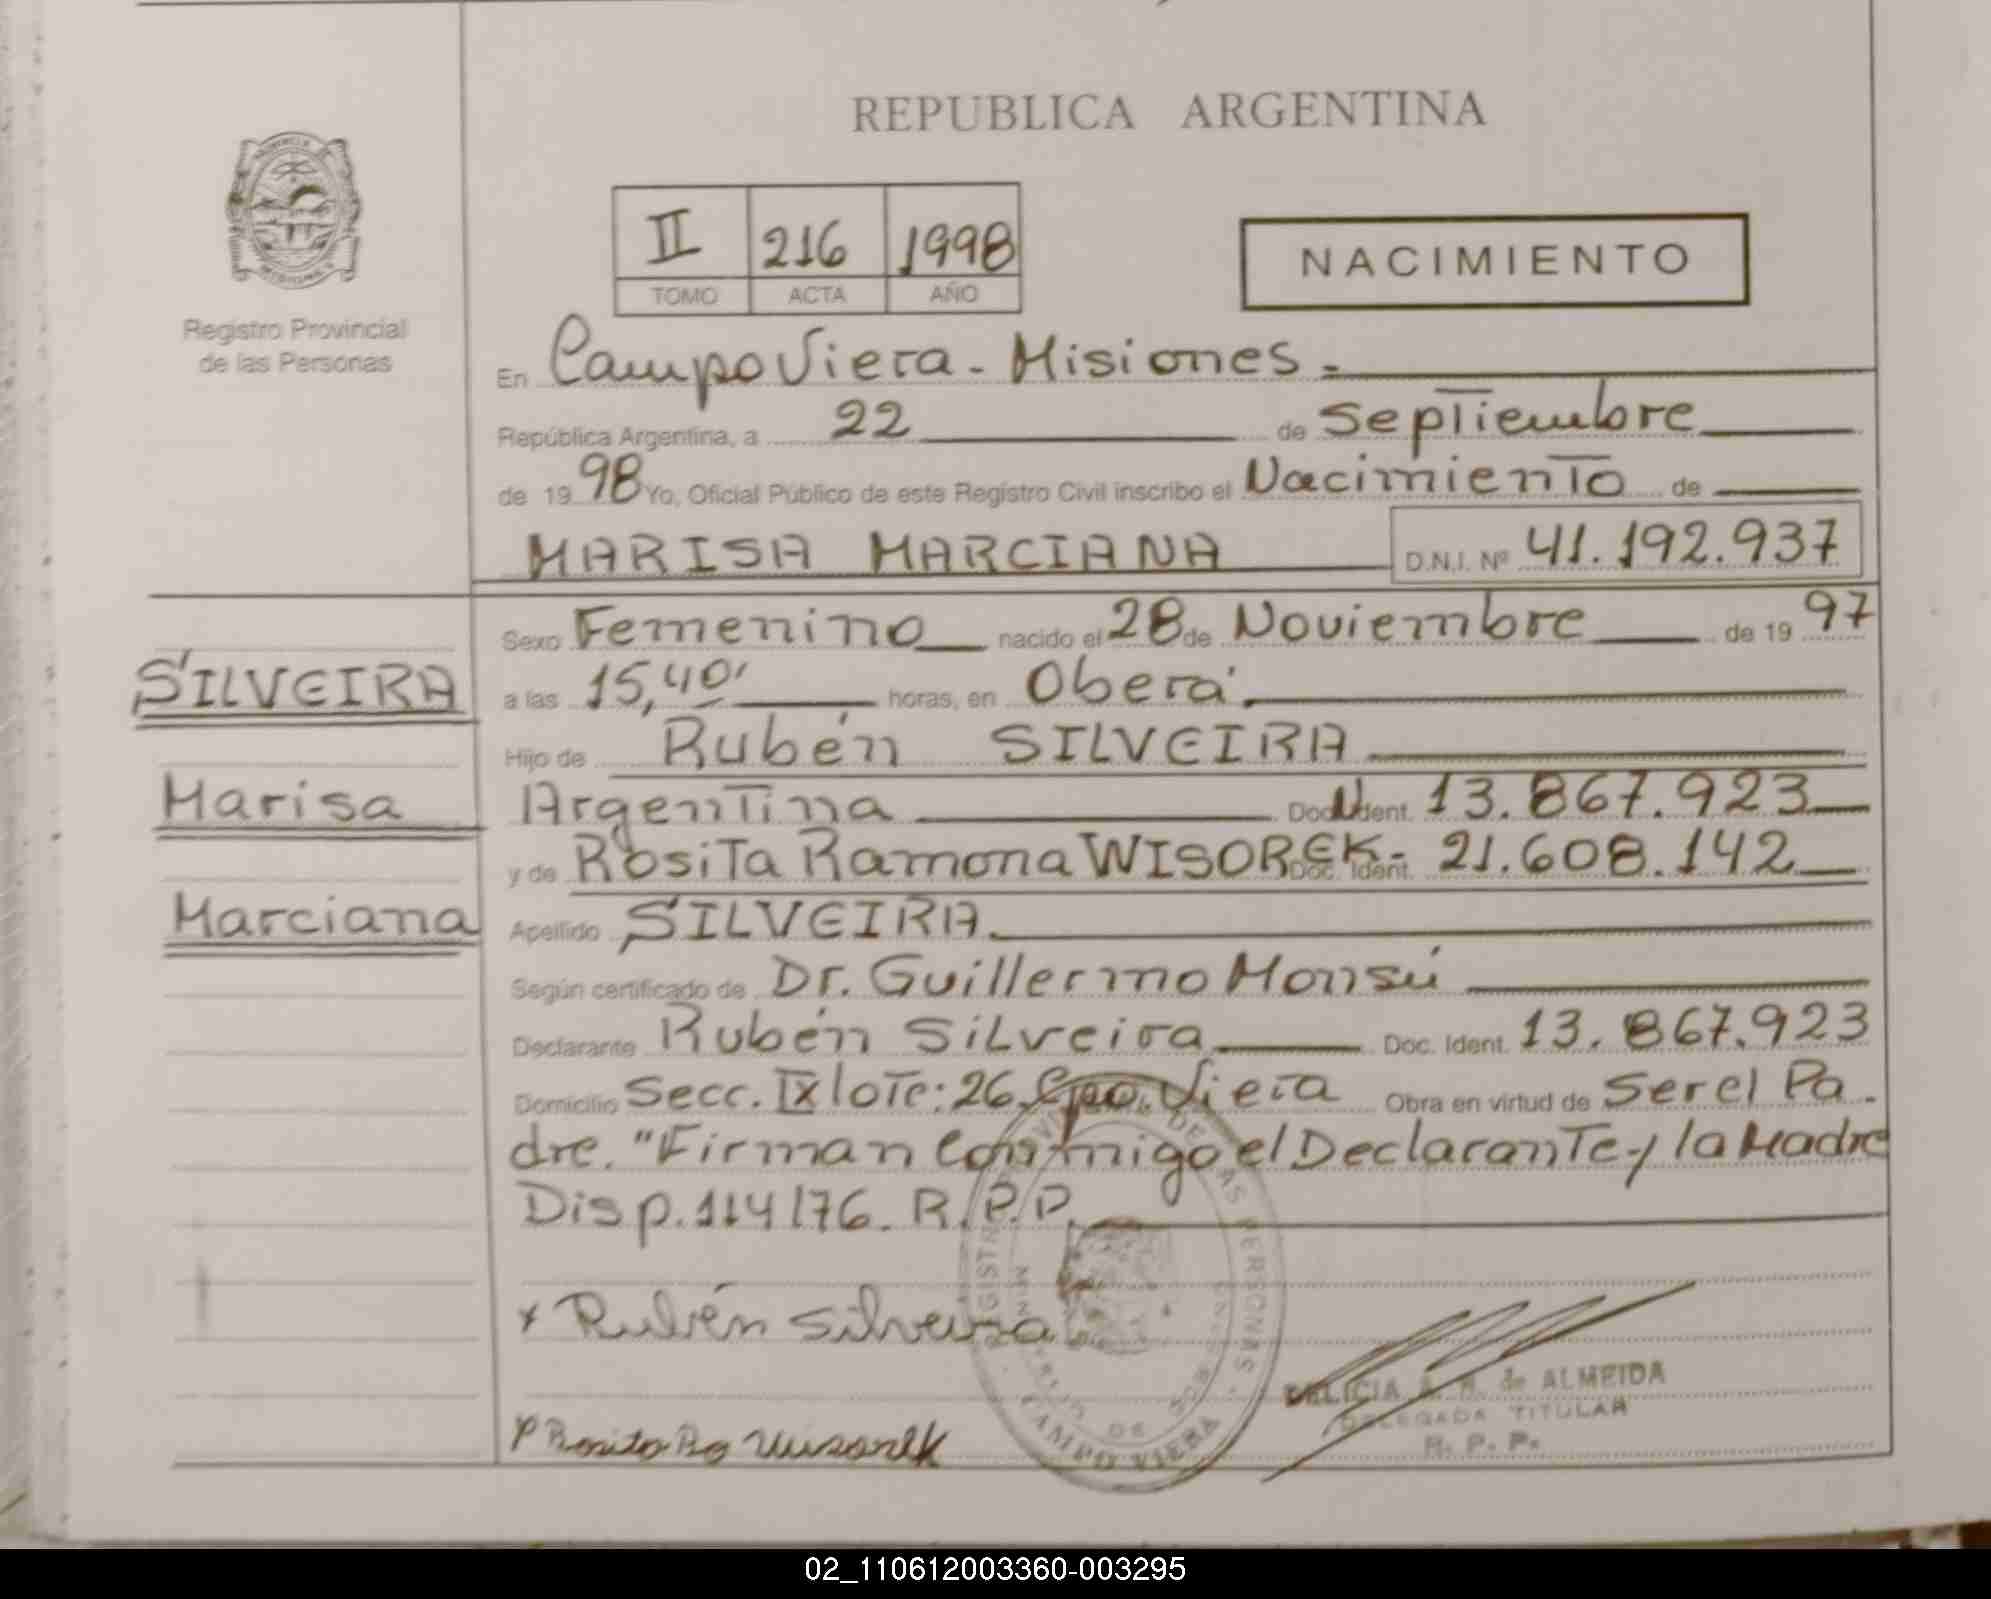 REPUBLICA ARGENTINA
II 216 1998
TOMO ACTA AÑO
NACIMIENTO
Registro Provincial
de las Personas
En Campo Viera - Misiones.-
República Argentina, a 22 de Septiembre
de 19 98 Yo, Oficial Público de este Registro Civil inscribo el Nacimiento de
MARISA MARCIANA D.N.I. Nº 41.192.937
Sexo Femenino nacido el 28 de Noviembre de 19 97
SILVEIRA
a las 15,40' horas, en Oberá
Hijo de Rubén SILVEIRA
Marisa
Argentina Doc. Ident. 13.867.923
y de Rosita Ramona WISOREK- Doc. Ident. 21.608.142
Marciana
Apellido SILVEIRA
Según certificado de Dr. Guillermo Monsú
Declarante Rubén Silveira Doc. Ident. 13.867.923
Domicilio Secc. IX lote: 26 Cpo. Viera Obra en virtud de Ser el Pa-
dre. "Firman Conmigo el Declarante y la Madre
Disp. 114/76. R.P.P.
x Rubén Silveira
DELICIA A. de ALMEIDA
DELEGADA TITULAR
R. P. P.
CAMPO VIERA
02_110612003360-003295